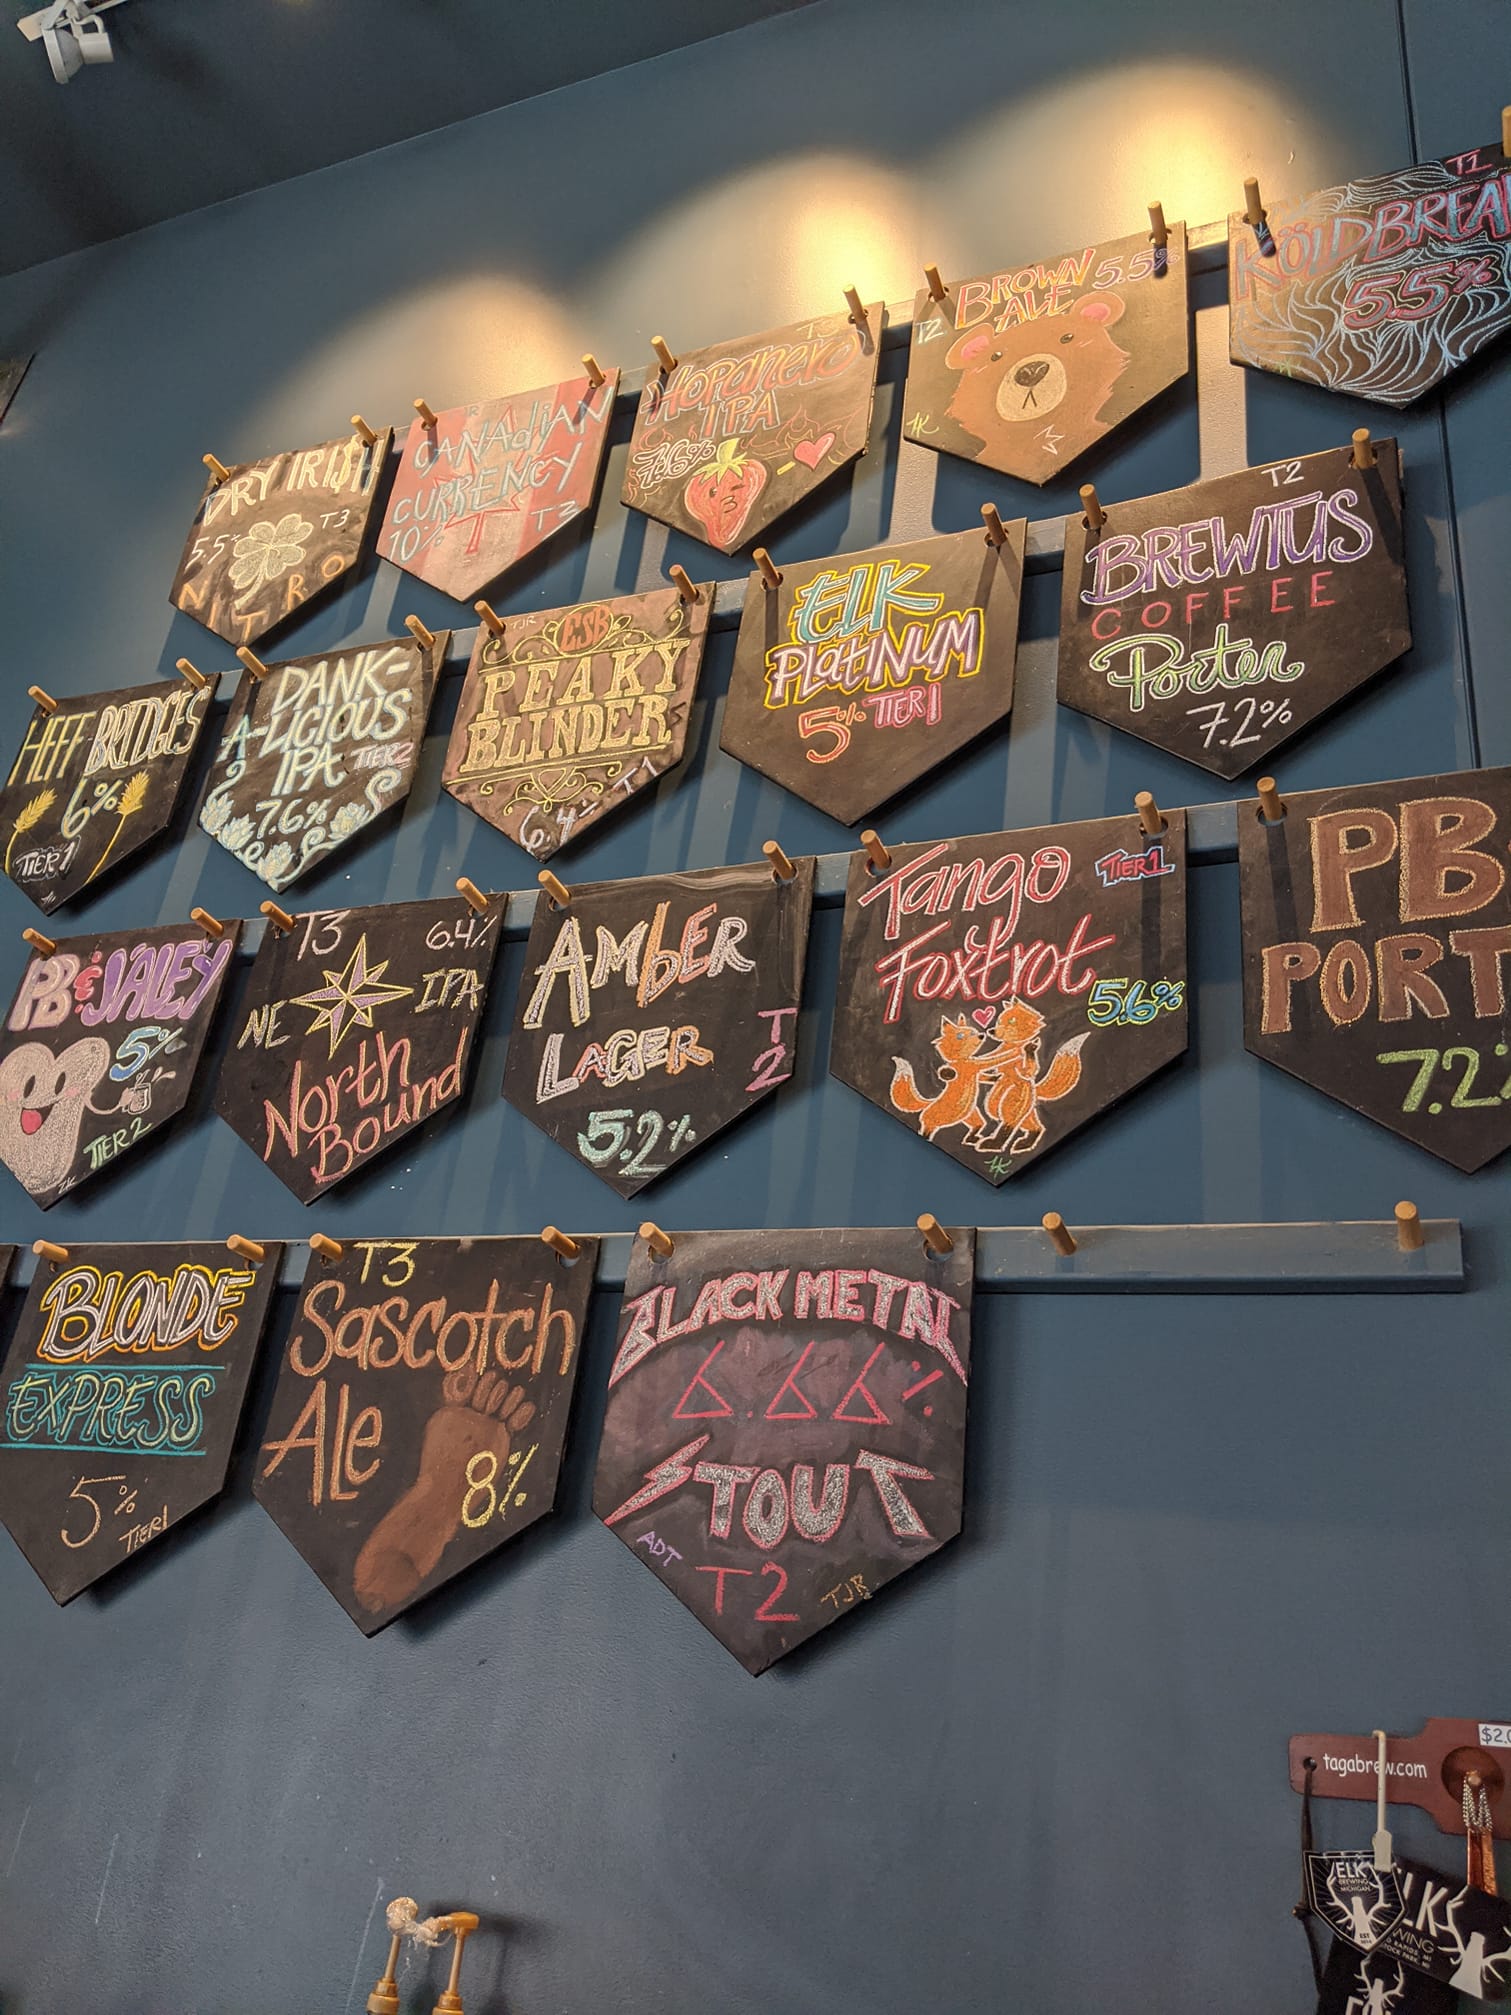 DRY IRISH
5.5%
T3
NITRO
CANADIAN
CURRENCY
10%
T3
T3
HOPANERO
IPA
7.6%
BROWN 5.5%
ALE
T2
AK
T1
KÖLDBREA
5.5%
HEFF BRIDGES
6%
TIER 1
DANK-
A-LICIOUS
IPA TIER 2
7.6%
TJR
ESB
PEAKY
BLINDERS
6.4% T1
ELK
PLATINUM
5% TIER 1
T2
BREWTUS
COFFEE
Porter
7.2%
PB & JALEY
5%
TIER 2
T3 6.4%
NE IPA
North
Bound
AMBER
LAGER
T2
5.2%
Tango TIER 1
Foxtrot
5.6%
AK
PB
PORT
7.2%
BLONDE
EXPRESS
5%
TIER 1
T3
Sascotch
Ale
8%
BLACK METAL
6.66%
STOUT
ADT
T2 TJR
$2.0
tagabrew.com
ELK
BREWING
MICHIGAN
LK
WING